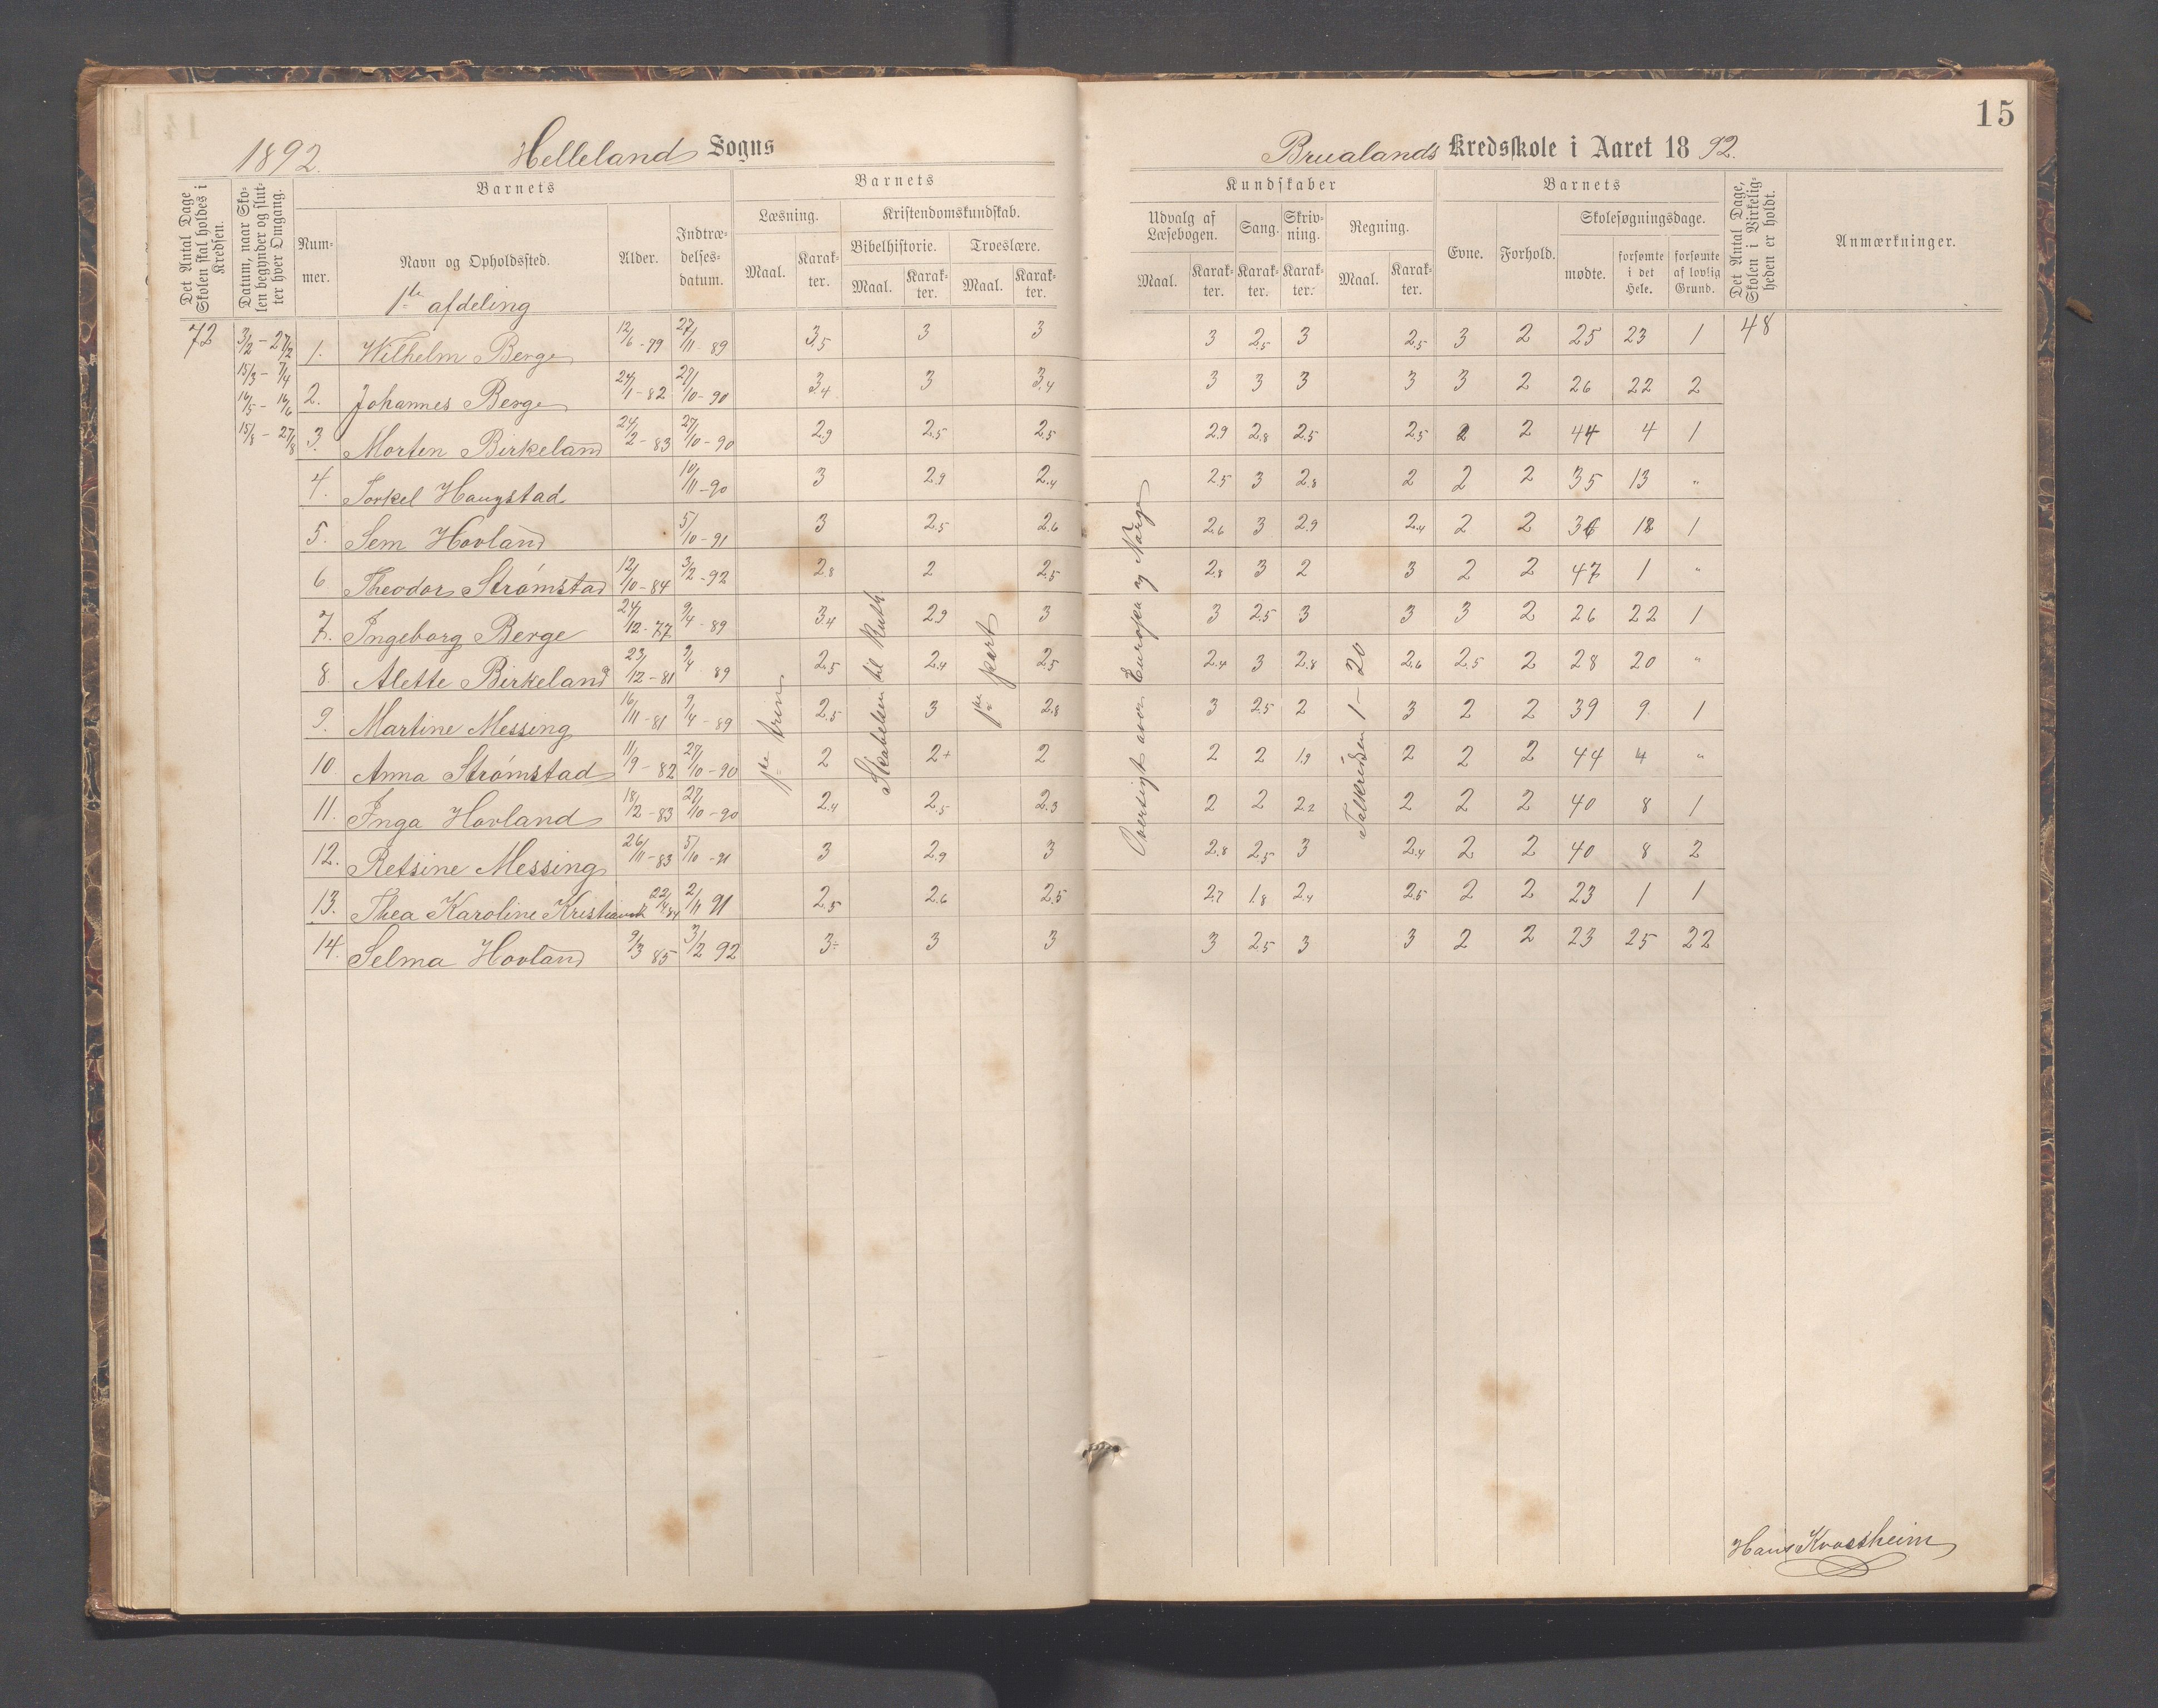 15
1892. Helleland Sogns Brualands Kredsskole i Aaret 1892.
Det Antal Dage Skolen skal holdes i Kredsen.
Datum, naar Skolen begynder og slutter hver Omgang.
Barnets
Nummer.
Navn og Opholdssted.
Alder.
Indtrædelsesdatum.
Barnets
Læsning.
Maal. Karakter.
Kristendomskundskab.
Bibelhistorie. Troeslære.
Maal. Karakter. Maal. Karakter.
Kundskaber
Udvalg af Læsebogen. Sang. Skrivning. Regning.
Maal. Karakter. Karakter. Karakter. Maal. Karakter.
Barnets
Evne. Forhold. Skolesøgningsdage.
mødte. forsømte i det Hele. forsømte af lovlig Grund.
Det Antal Dage, Skolen i Virkeligheden er holdt.
Anmærkninger.
1ste afdeling
72 48
3/2 - 27/2
15/3 - 7/4
16/5 - 16/6
15/8 - 27/8
1. Wilhelm Berge 12/6 - 79 27/11 - 89 3.5 3 3 3 2.5 3 2.5 3 2 25 23 1
2. Johannes Berge 24/1 - 82 27/10 - 90 3.4 3 3.4 3 3 3 3 3 2 26 22 2
3. Morten Birkeland 24/2 - 83 27/10 - 90 2.9 2.5 2.5 2.9 2.8 2.5 2.5 2 2 44 4 1
4. Torkel Haugstad 10/11 - 90 3 2.9 2.4 2.5 3 2.8 2 2 2 35 13 "
5. Sem Hovland 5/10 - 91 3 2.5 2.6 2.6 3 2.9 2.4 2 2 36 12 1
6 Theodor Strømstad 12/10 - 84 3/2 - 92 2.8 2 2.5 2.8 3 2 3 2 2 47 1 "
7. Ingeborg Berge 24/12 - 77 9/4 - 89 3.4 2.9 3 3 2.5 3 3 3 2 26 22 1
8. Alette Birkeland 23/12 - 81 9/4 89 2.5 2.4 2.5 2.4 3 2.8 2.6 2.5 2 28 20 "
9. Martine Messing 16/11 - 81 9/4 - 89 2.5 3 2.8 3 2.5 2 3 2 2 39 9 1
10 Anna Strømstad 11/9 - 82 27/10 - 90 2 2+ 2 2 2 1.9 2 2 2 44 4 "
11. Inga Hovland 18/2 - 83 27/10 - 90 2.4 2.5 2.3 2 2 2.2 2 2 2 40 8 1
12. Retsine Messing 26/11 - 83 5/10 - 91 3 2.9 3 2.8 2.5 3 2.4 2 2 40 8 2
13. Thea Karoline 22/4 84 2/11 91 2.5 2.6 2.5 2.7 1.8 2.4 2.5 2 2 23 1 1
14. Selma Hovland 9/3 85 3/2 92 3÷ 3 3 3 2.5 3 3 2 2 23 25 22
1ste trin
Skabelsen til Ruth
1ste part
Oversigt over Europa og Norge
Talkredsen 1 - 20
Hans Kvassheim